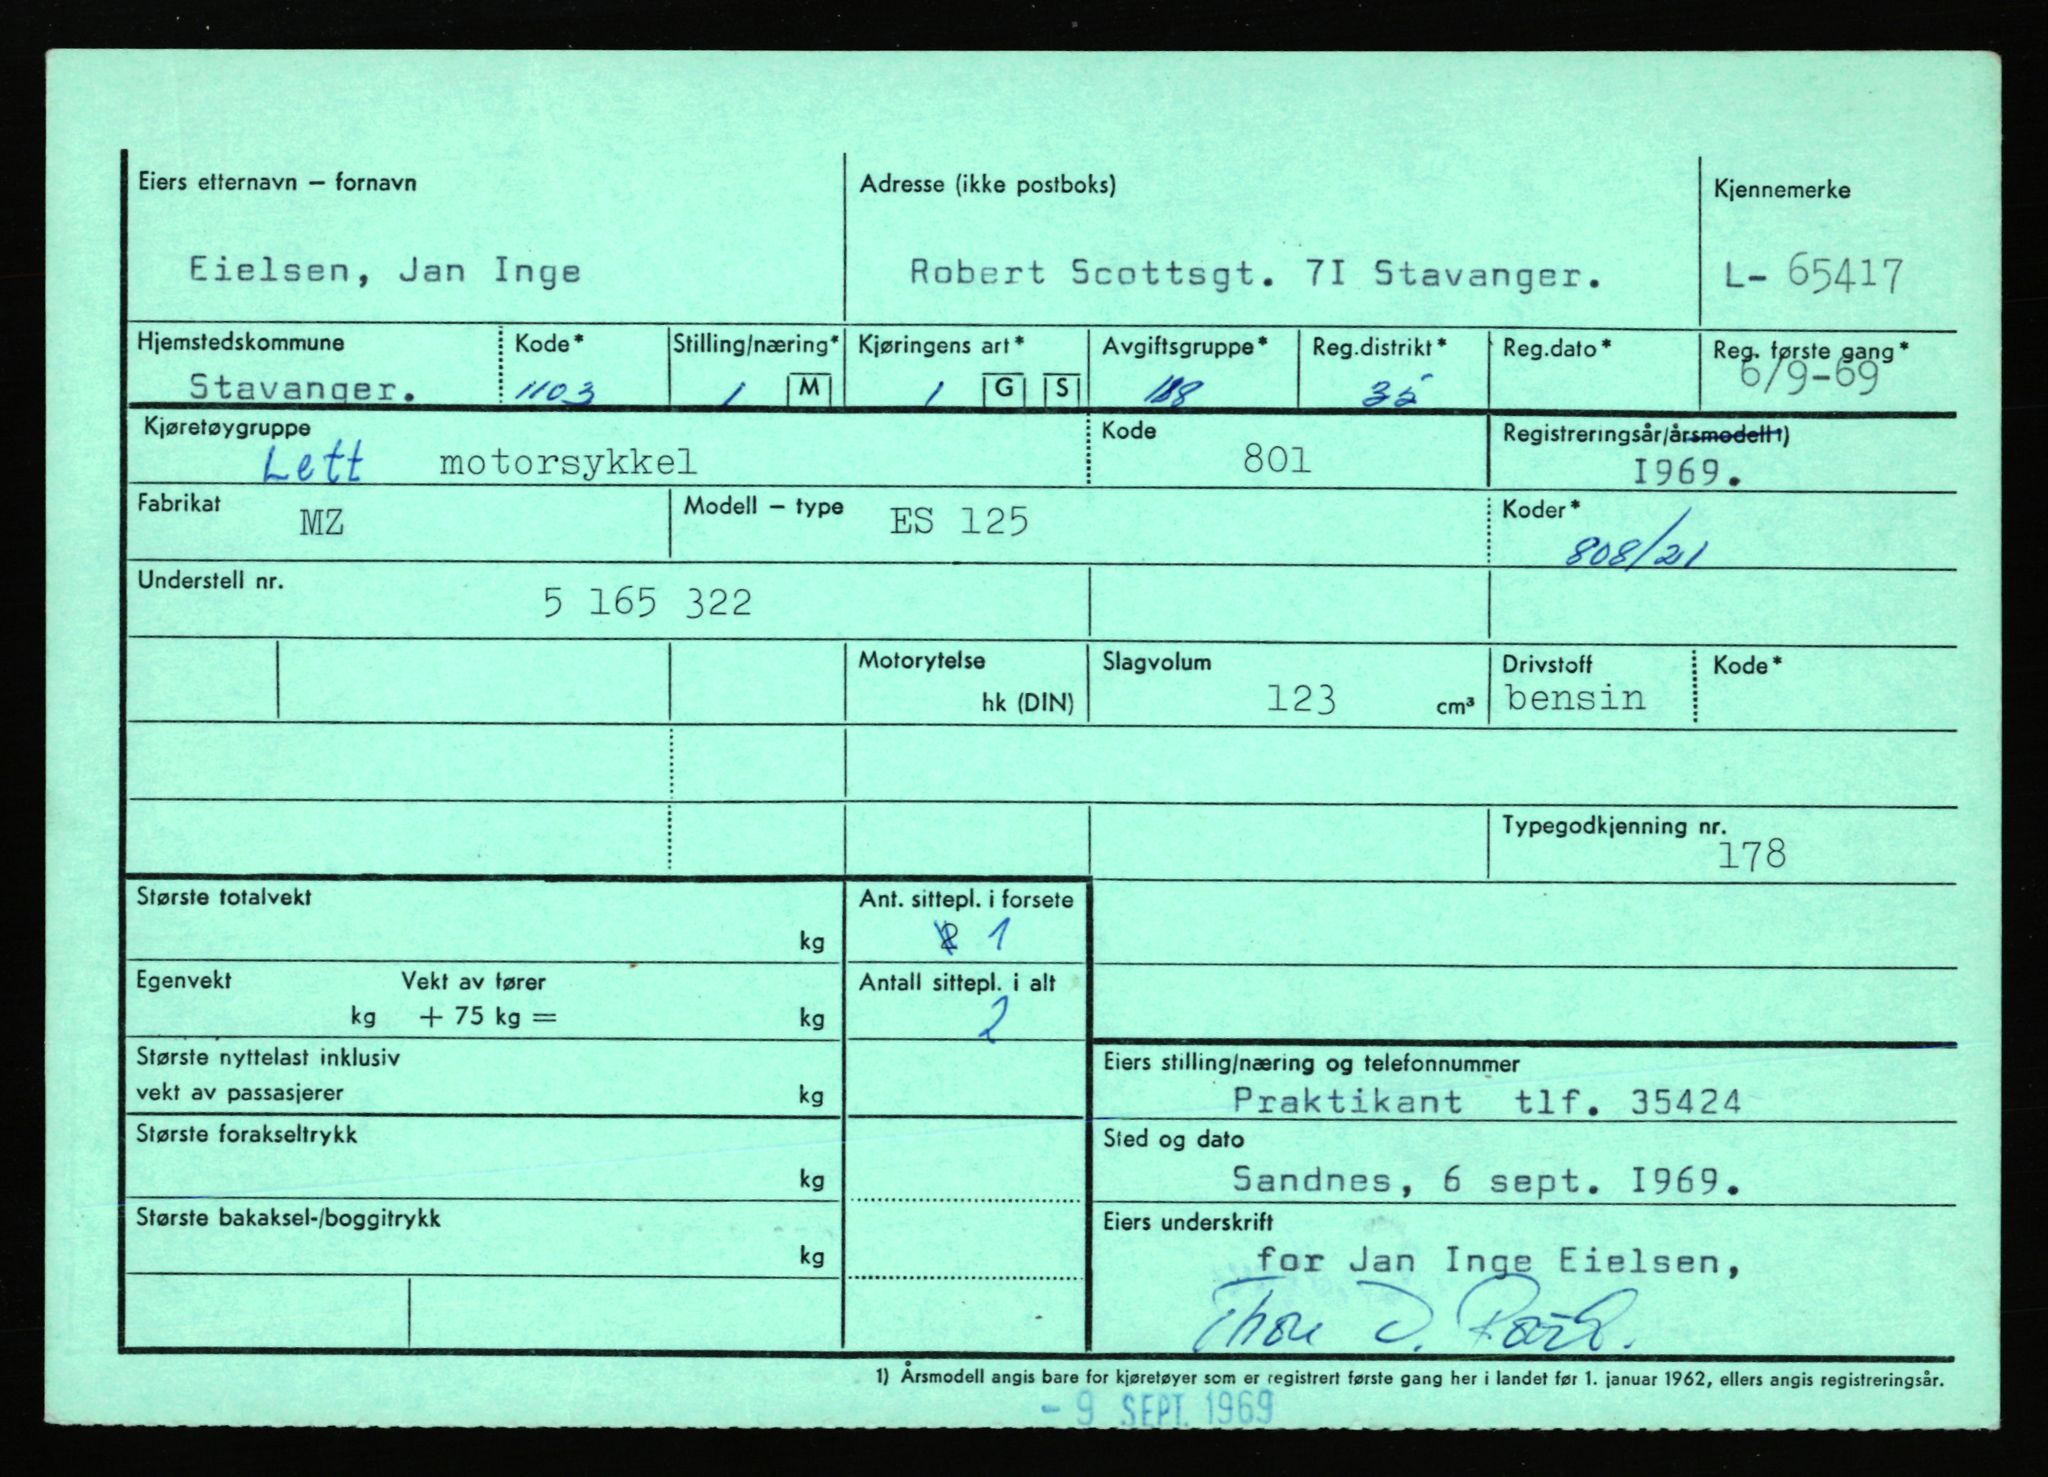 Eiers etternavn – fornavn
Adresse (ikke postboks)
Kjennemerke
Eielsen, Jan Inge
Robert Scottsgt. 7I Stavanger.
L- 65417
Hjemstedskommune
Kode*
Stilling/næring*
Kjøringens art*
Avgiftsgruppe*
Reg.distrikt*
Reg.dato*
Reg. første gang*
Stavanger.
1103
1 M
1 G S
35
6/9-69
Kjøretøygruppe
Kode
Registreringsår/årsmodell1)
Lett motorsykkel
801
I969.
Fabrikat
Modell – type
Koder*
MZ
ES 125
808/21
Understell nr.
5 165 322
Motorytelse
Slagvolum
Drivstoff
Kode*
hk (DIN)
123 cm³
bensin
Typegodkjenning nr.
178
Største totalvekt
kg
Ant. sittepl. i forsete
2 1
Egenvekt
Vekt av fører
kg + 75 kg =
kg
Antall sittepl. i alt
2
Største nyttelast inklusiv
vekt av passasjerer
kg
Eiers stilling/næring og telefonnummer
Praktikant tlf. 35424
Største forakseltrykk
kg
Sted og dato
Sandnes, 6 sept. I969.
Største bakaksel-/boggitrykk
kg
Eiers underskrift
for Jan Inge Eielsen,
Thore D.
1) Årsmodell angis bare for kjøretøyer som er registrert første gang her i landet før 1. januar 1962, ellers angis registreringsår.
- 9 SEPT. 1969